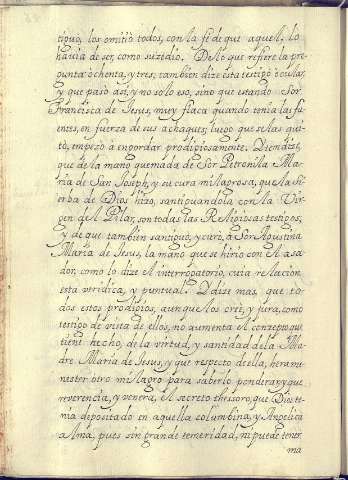 tiguo, los omitiò todos, con la fè de que aquel lo
hauia de ser, como suzedio. De lo que refiere la pre
gunta ochenta, y tres, tambien dize esta testigo ocular,
y que pasò asi, y no solo eso, sino que estando Sor
Francisca de Jesus, muy flaca quando tenia las fu
entes, en fuerza de sus achaques; luego que se las qui
tò, empezò a engordar prodigiosamente. Diziendose,
que de la mano quemada de Sor Petronila Ma
ria de San Joseph, y su cura milagrosa, que la Si
erba de Dios hizo, santiguandola con la Vir
gen del Pilar, son todas las Religiosas testigos,
y de que tambien santiguò, y curò, a Sor Agustina
Maria de Jesus, la mano que se hirio con el asa
dor, como lo dize el interrogatorio, cuia relacion
esta veridica, y puntual. Y dize mas, que to
dos estos prodigios, aunque los creè, y jura, como
testigo de vista de ellos, no aumenta el conzepto que
tiene hecho, de la virtud, y santidad de la Ma
dre Maria de Jesus, y que respecto de ella, hera me
nester otro milagro para saberlo ponderar, y que
reverencia, y venera, el secreto thessoro, que Dios te
nia depositado en aquella columbina, y Angelica
Alma, pues sin grande temeridad, ni puede tener
ma